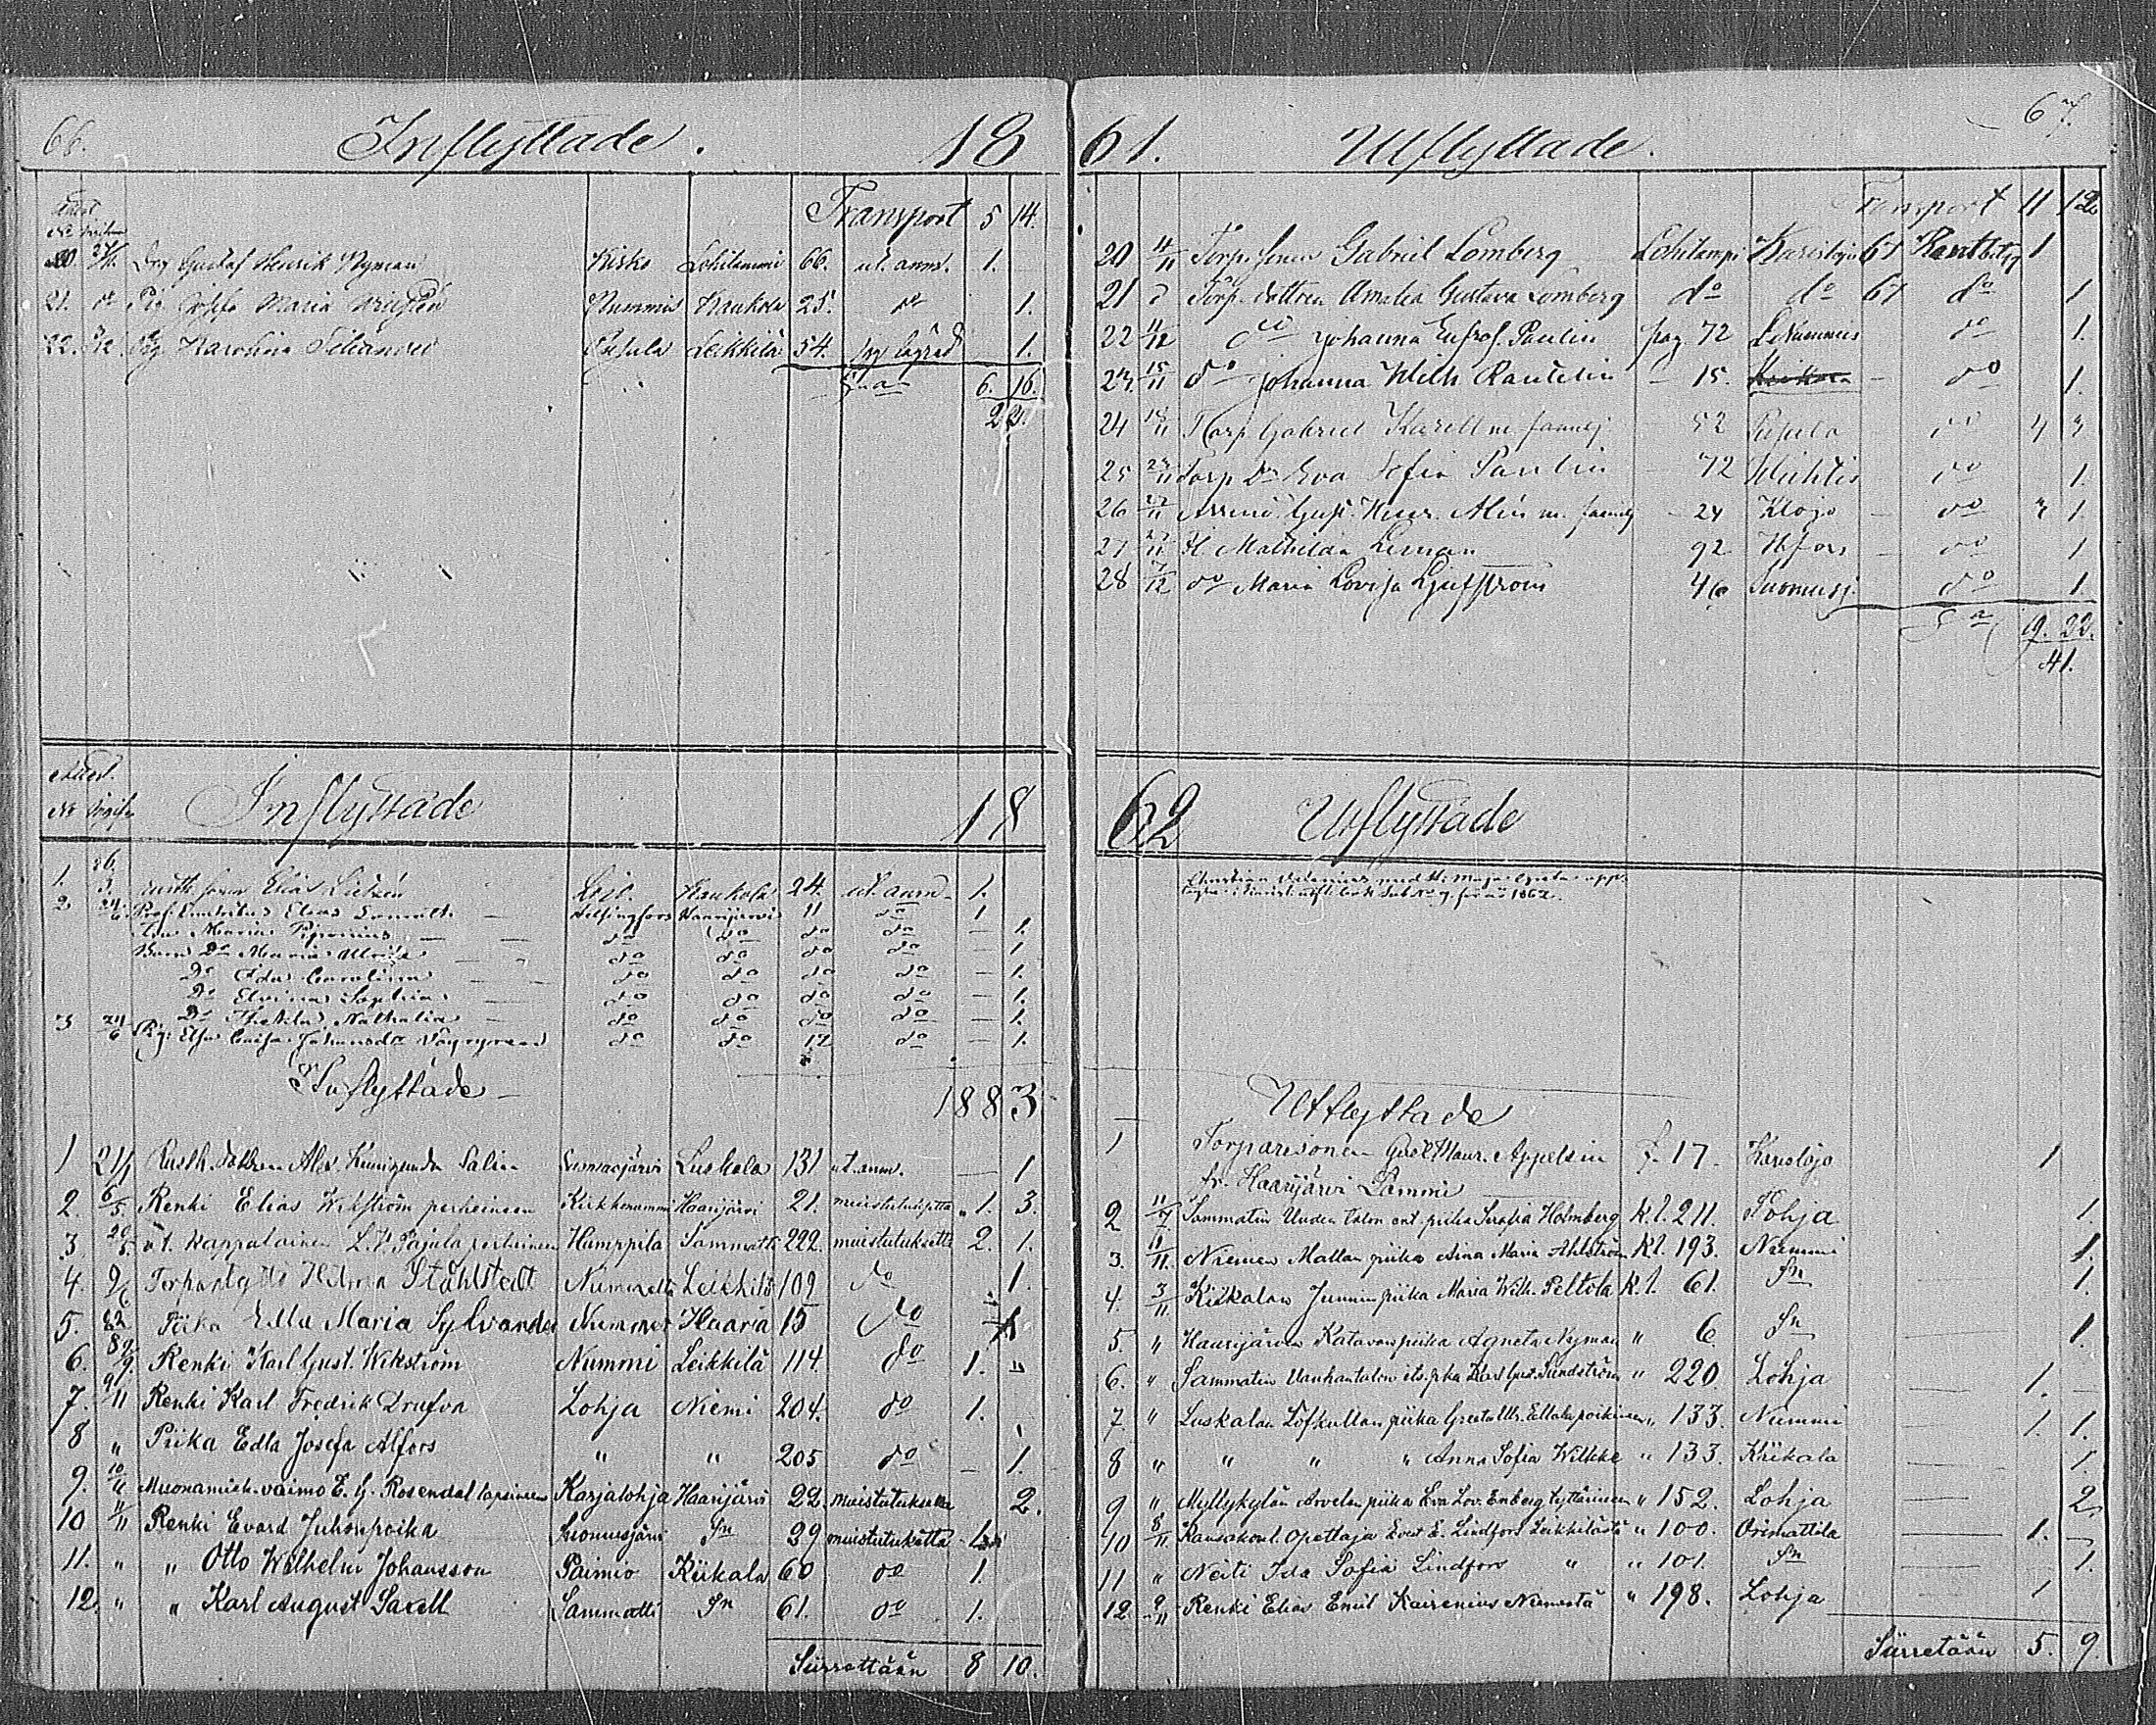 66. Inflyttade. 18
Transport 5 14.
20 Drg Gustaf Henrik Nyman Kisko Lohilammi 66. ut. anm. 1.
21. do Pig Maria Nummis Haukola 25. do 1.
22. Pig Karolina Pusula Leikkilä 54. 1.
Sua 6. 16.
22.
61. Utflyttade. 67.
Transport 11 12
20 4/11 Torp. sonen Gabriel Lomberg Lohilampi Karislojo 61 1
21 d Torp. dottren Amalia Gustava Lomberg do do 61 do 1
22 11/12 do Johanna Eufros. Paulin pag 72 Nummis do 1.
23. 15/11 do Johanna Wilh Rautelin 15. do 1.
24 18/11 Torp Gabriel Karell m. familj 52 Pusula do 4
25 27/11 Torp Dr Eva Sofia Paulin 72 Wichtis do 1.
26 27/11 Gust. Henr. Alén m. familj 24 Klojo do 1.
27 27/11 Mathilda Leman 92 Hfors do 1
28 7/12 do Maria Lovisa Ljufström 46 Suomusj. do 1.
Sa 19. 22.
41.
No Inflyttade 18
1. Elias Lojo. Haukola 24. ut anm. 1.
2 24/6 Prof. Emeritus Elias Lönnrot Helsingfors Haarijärvi 11 do 1
Maria Piponius do do do do 1.
Barn Dr Maria Ulrika do do do do 1
Do Ida Carolina do do do do 1.
Do Elvina Sophia do do do do 1.
Do Thekila Nathalia do do do do 1.
3 24/6 Pig: Elsa Caisa Johansdr do do 12 do 1.
62 Utflyttade
Christian med H. Maja Greta
1862.
Inflyttade 1883
1 21/1 Rusth. dottren Alex. Kunigunda Salin Suomusjärvi Luskala 131 ut. anm. 1
2. 6/5. Renki Elias Wikström perheineen Kirkkonummi Haarijärvi 21. muistutuksitta 1. 3.
3 20/5. v.t. kappalainen L. H. Pajula perheineen Humppila Sammatti 222. muistutuksetta 2. 1.
4. 9/6 Torpantyttö Hilma Ståhlstedt Nummelta Leikkilä 109 do 1.
5. Piika Edla Maria Sylvander Nummi Haaria 15 do 1
6. 8/9. Renki Karl Gust. Wikström Nummi Leikkilä 114. do 1. "
7. 9/11 Renki Karl Fredrik Drufva Lohja Niemi 204. do 1.
8 " Piika Edla Josefa Alfors " " 205 do 1.
9. 10/11 Muonamieh. vaimo E. G. Rosendal lapsineen Karjalohja Haarijärvi 22 muistutuksetta 2.
10 11/11 Renki Evard Juhonpoika Suomusjärvi Sn 29 muistutuksetta 1.
11. " " Otto Wilhelm Johansson Paimio Kiikala 60 do 1.
12. " " Karl August Saxell Sammatti Sn 61. do 1.
Siirrettään 8 10.
Utflyttade
1 Torparesonen Gust. Maur. Appelsin f. 17. Karislojo 1
fr. Haarijärvi Lammi
2 11/7 Sammatin Uuden talon ent. piika Serafia Holmberg k. l. 211. Pohja 1.
3. 10/11. Niemen Mallan piika Aina Maria Ahlström k l. 193. Nummi 1.
4. 3/11 Kiikalan Junnin piika Maria Wilh. Peltola k. l. 61. Sn 1.
5. " Haarijärven Katavan piika Agneta Nyman " 6 Sn 1.
6. " Sammatin Vanhantalon its. pka Karl Gust. Sundström " 220. Lohja 1.
7. " Luskalan Löfkullan piika Greta Ulr. Ellala poikineen " 133. Nummi 1. 1.
8 " " " " Anna Sofia Wilkke " 133. Kiikala 1.
9 " Myllykylän Arvelan piika Eva Lov. Enberg tyttärineen " 152. Lohja 2.
10 8/11 Kansakoul. Opettaja Evert E. Lindfors Leikkilästä " 100. Orimattila 1.
11 " Neiti Ida Sofia Lindfors " " 101. Sn 1.
12. 9/11 Renki Elias Emil Kairenius Niemestä " 198. Lohja 1
Siirretään 5. 9.